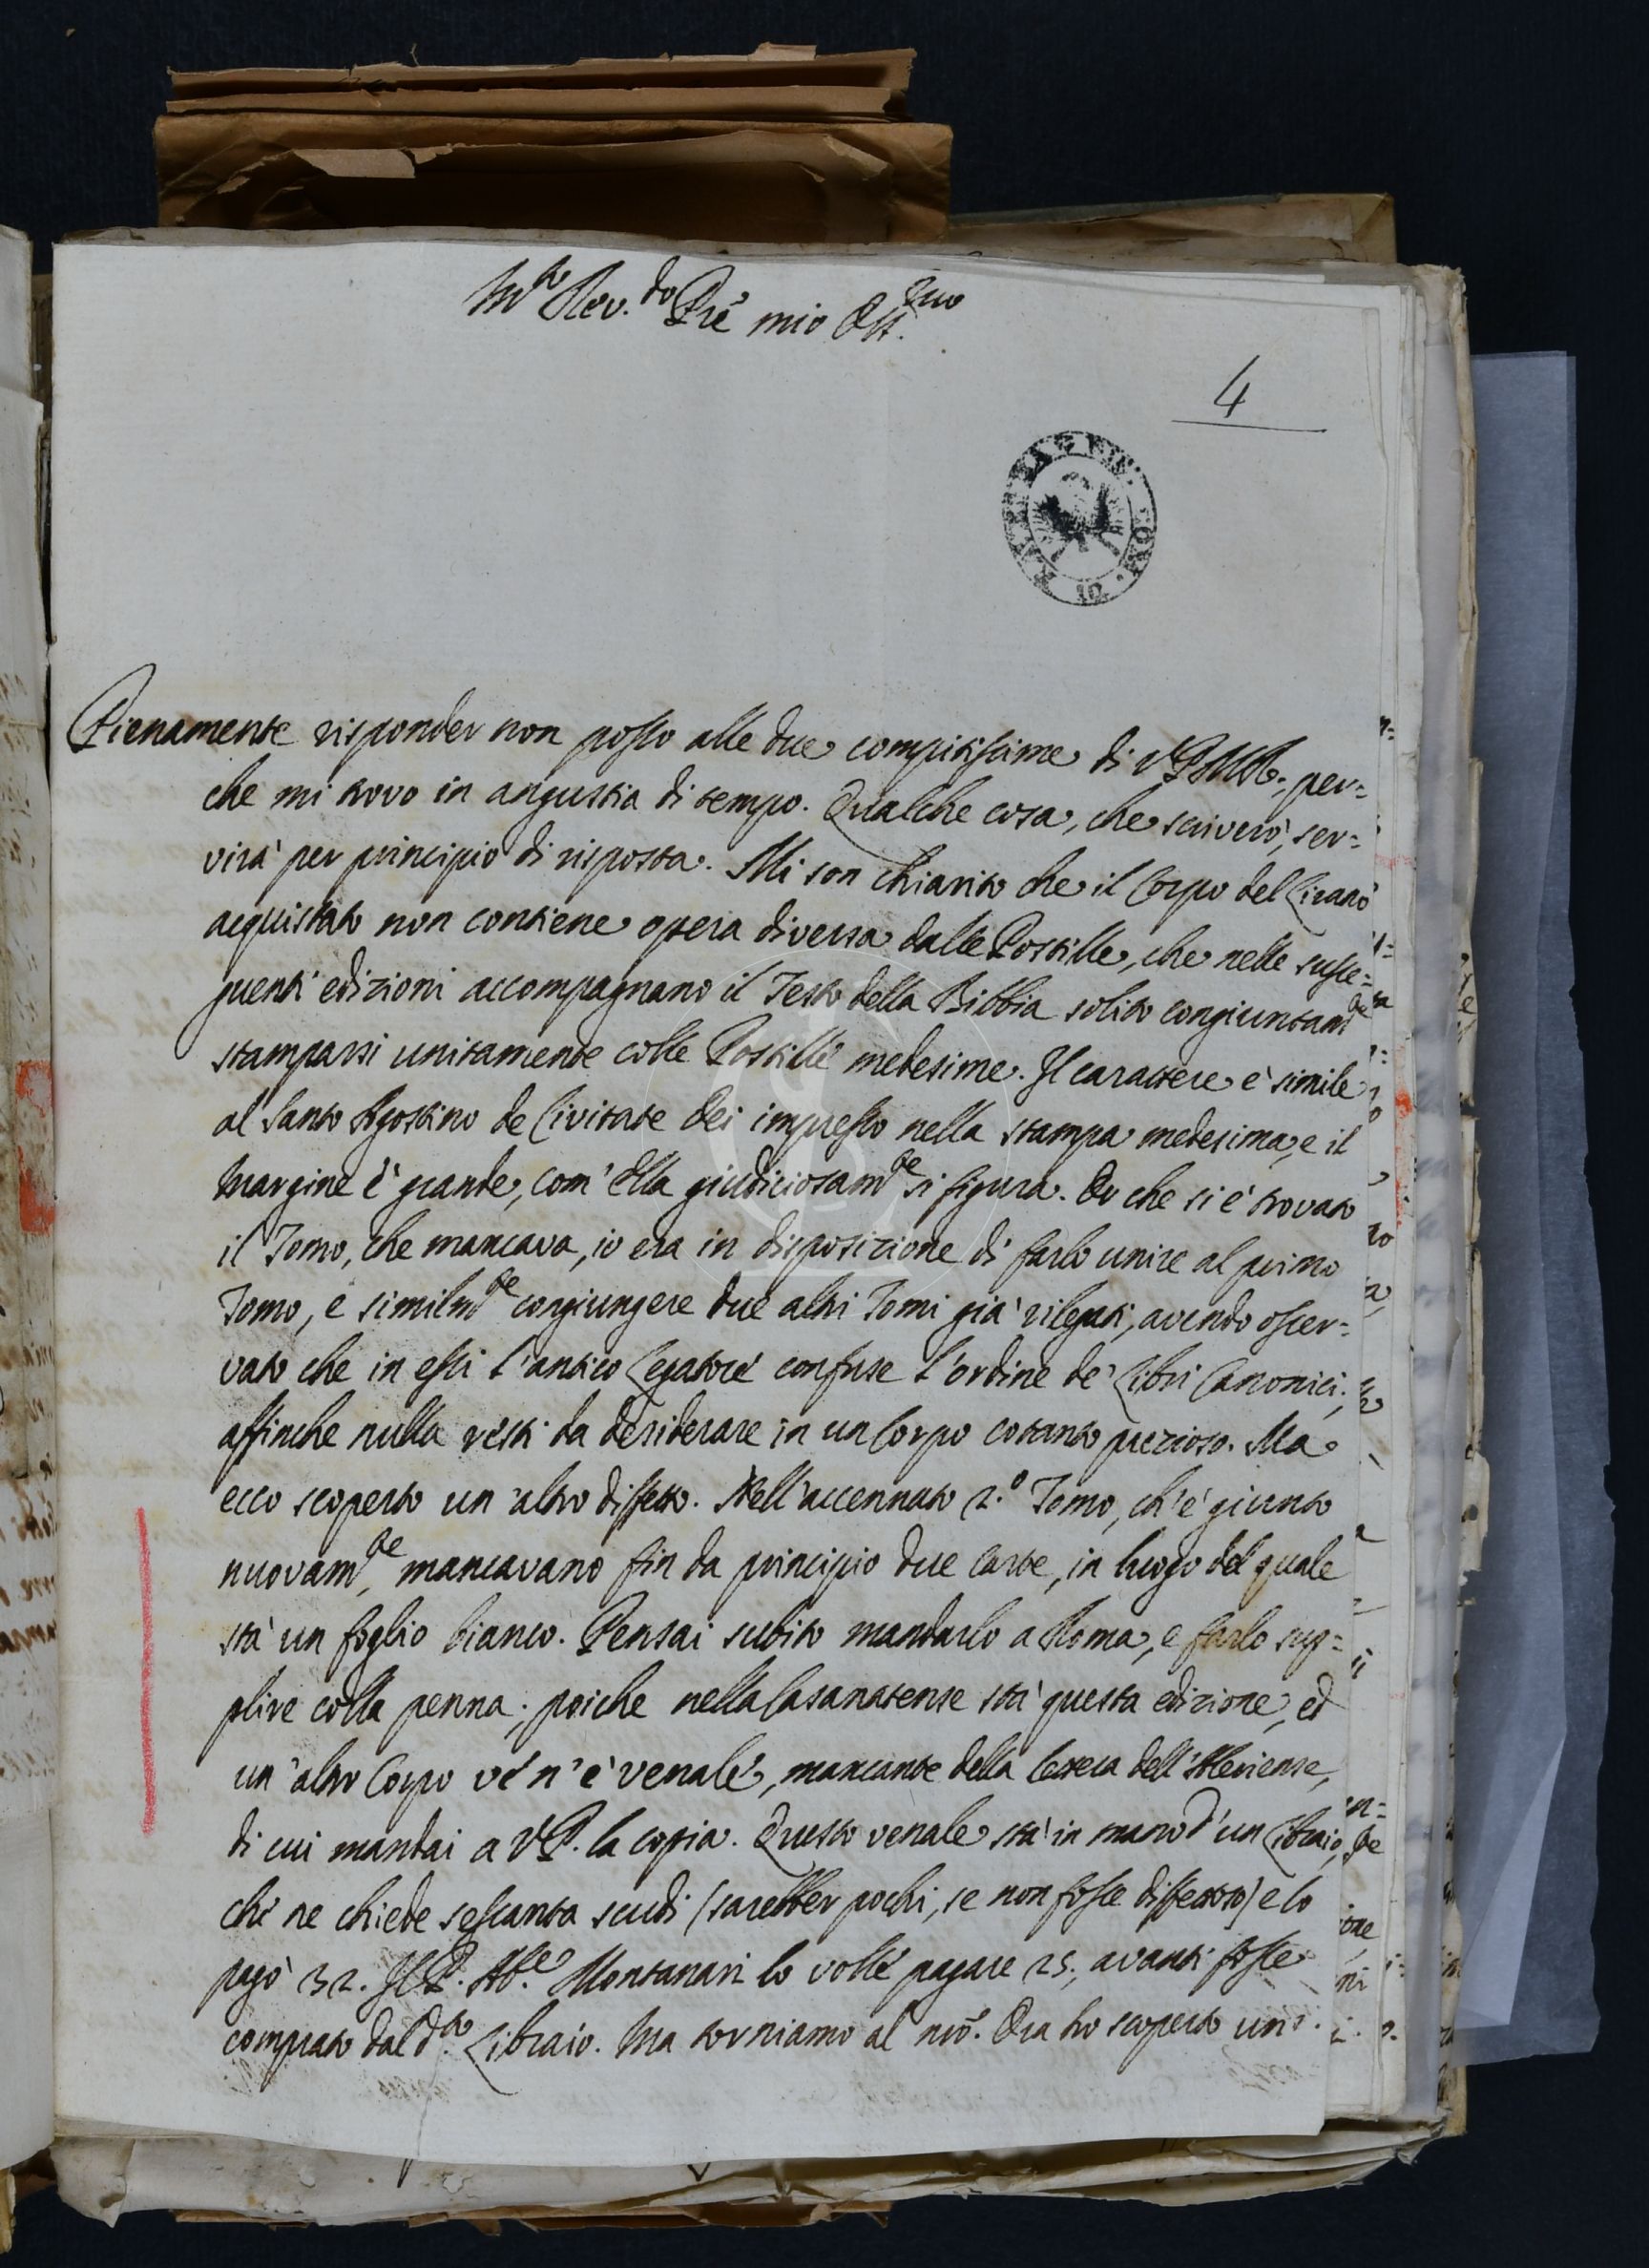 M.to Rev.do Pre mio Oss.mo
4
Pienamente risponder non posso alle due compitissime di V.P.M.R., per=
che mi trovo in angustia di tempo. Qualche cosa, che scriverò, ser=
virà per principio di risposta. Mi son chiarito che il Corpo del Lirano
acquistato non contiene opera diversa dalle Postille, che nelle susse=
guenti edizioni accompagnano il Testo della Bibbia solito congiuntam.te
stamparsi unitamente colle Postille medesime. Il carattere è simile
al Santo Agostino de Civitate Dei impresso nella stampa medesima, e il
Margine è grande, com'Ella giudiciosam.te si figura. Or che si è trovato
il Tomo, che mancava, io era in disposizione di farlo unire al primo
Tomo, e similm.te congiungere due altri Tomi già rilegati, avendo osser=
vato che in essi l'antico Legatore confuse l'ordine de' Libri Canonici;
affinche nulla resti da desiderare in un Corpo cotanto prezioso. Ma
ecco scoperto un'altro diffetto. Nell'accennato 2.o Tomo, ch'è giunto
nuovam.te, mancavano fin da principio due carte, in luogo del quale
stà un foglio bianco. Pensai subito mandarlo a Roma, e farlo sup=
plire colla penna; poiche nella Casanatense stà questa edizione, ed
un'altro Corpo ve n'è venale, mancante della lettera dell'Aleriense,
di cui mandai a V.P. la copia. Questo venale stà in mano d'un Libraio,
che ne chiede sessanta scudi (sarebber pochi, se non fosse diffettoso) e lo
pagò 32. Il P. Ab.e Montanari lo volle pagare 25, avanti fosse
comprato dal d.to Libraio. Ma torniamo al nrõ. Ora ho scoperto un